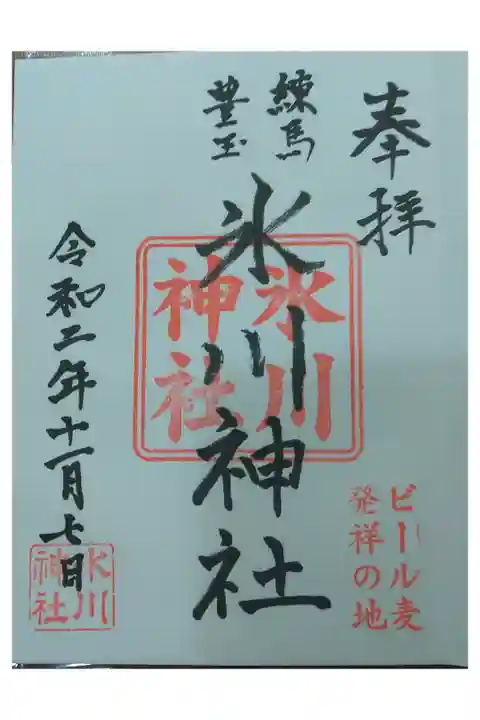 奉拝
練馬
豊玉
氷川神社
氷川
神社
ビール麦
発祥の地
令和二年十一月七日
氷川
神社